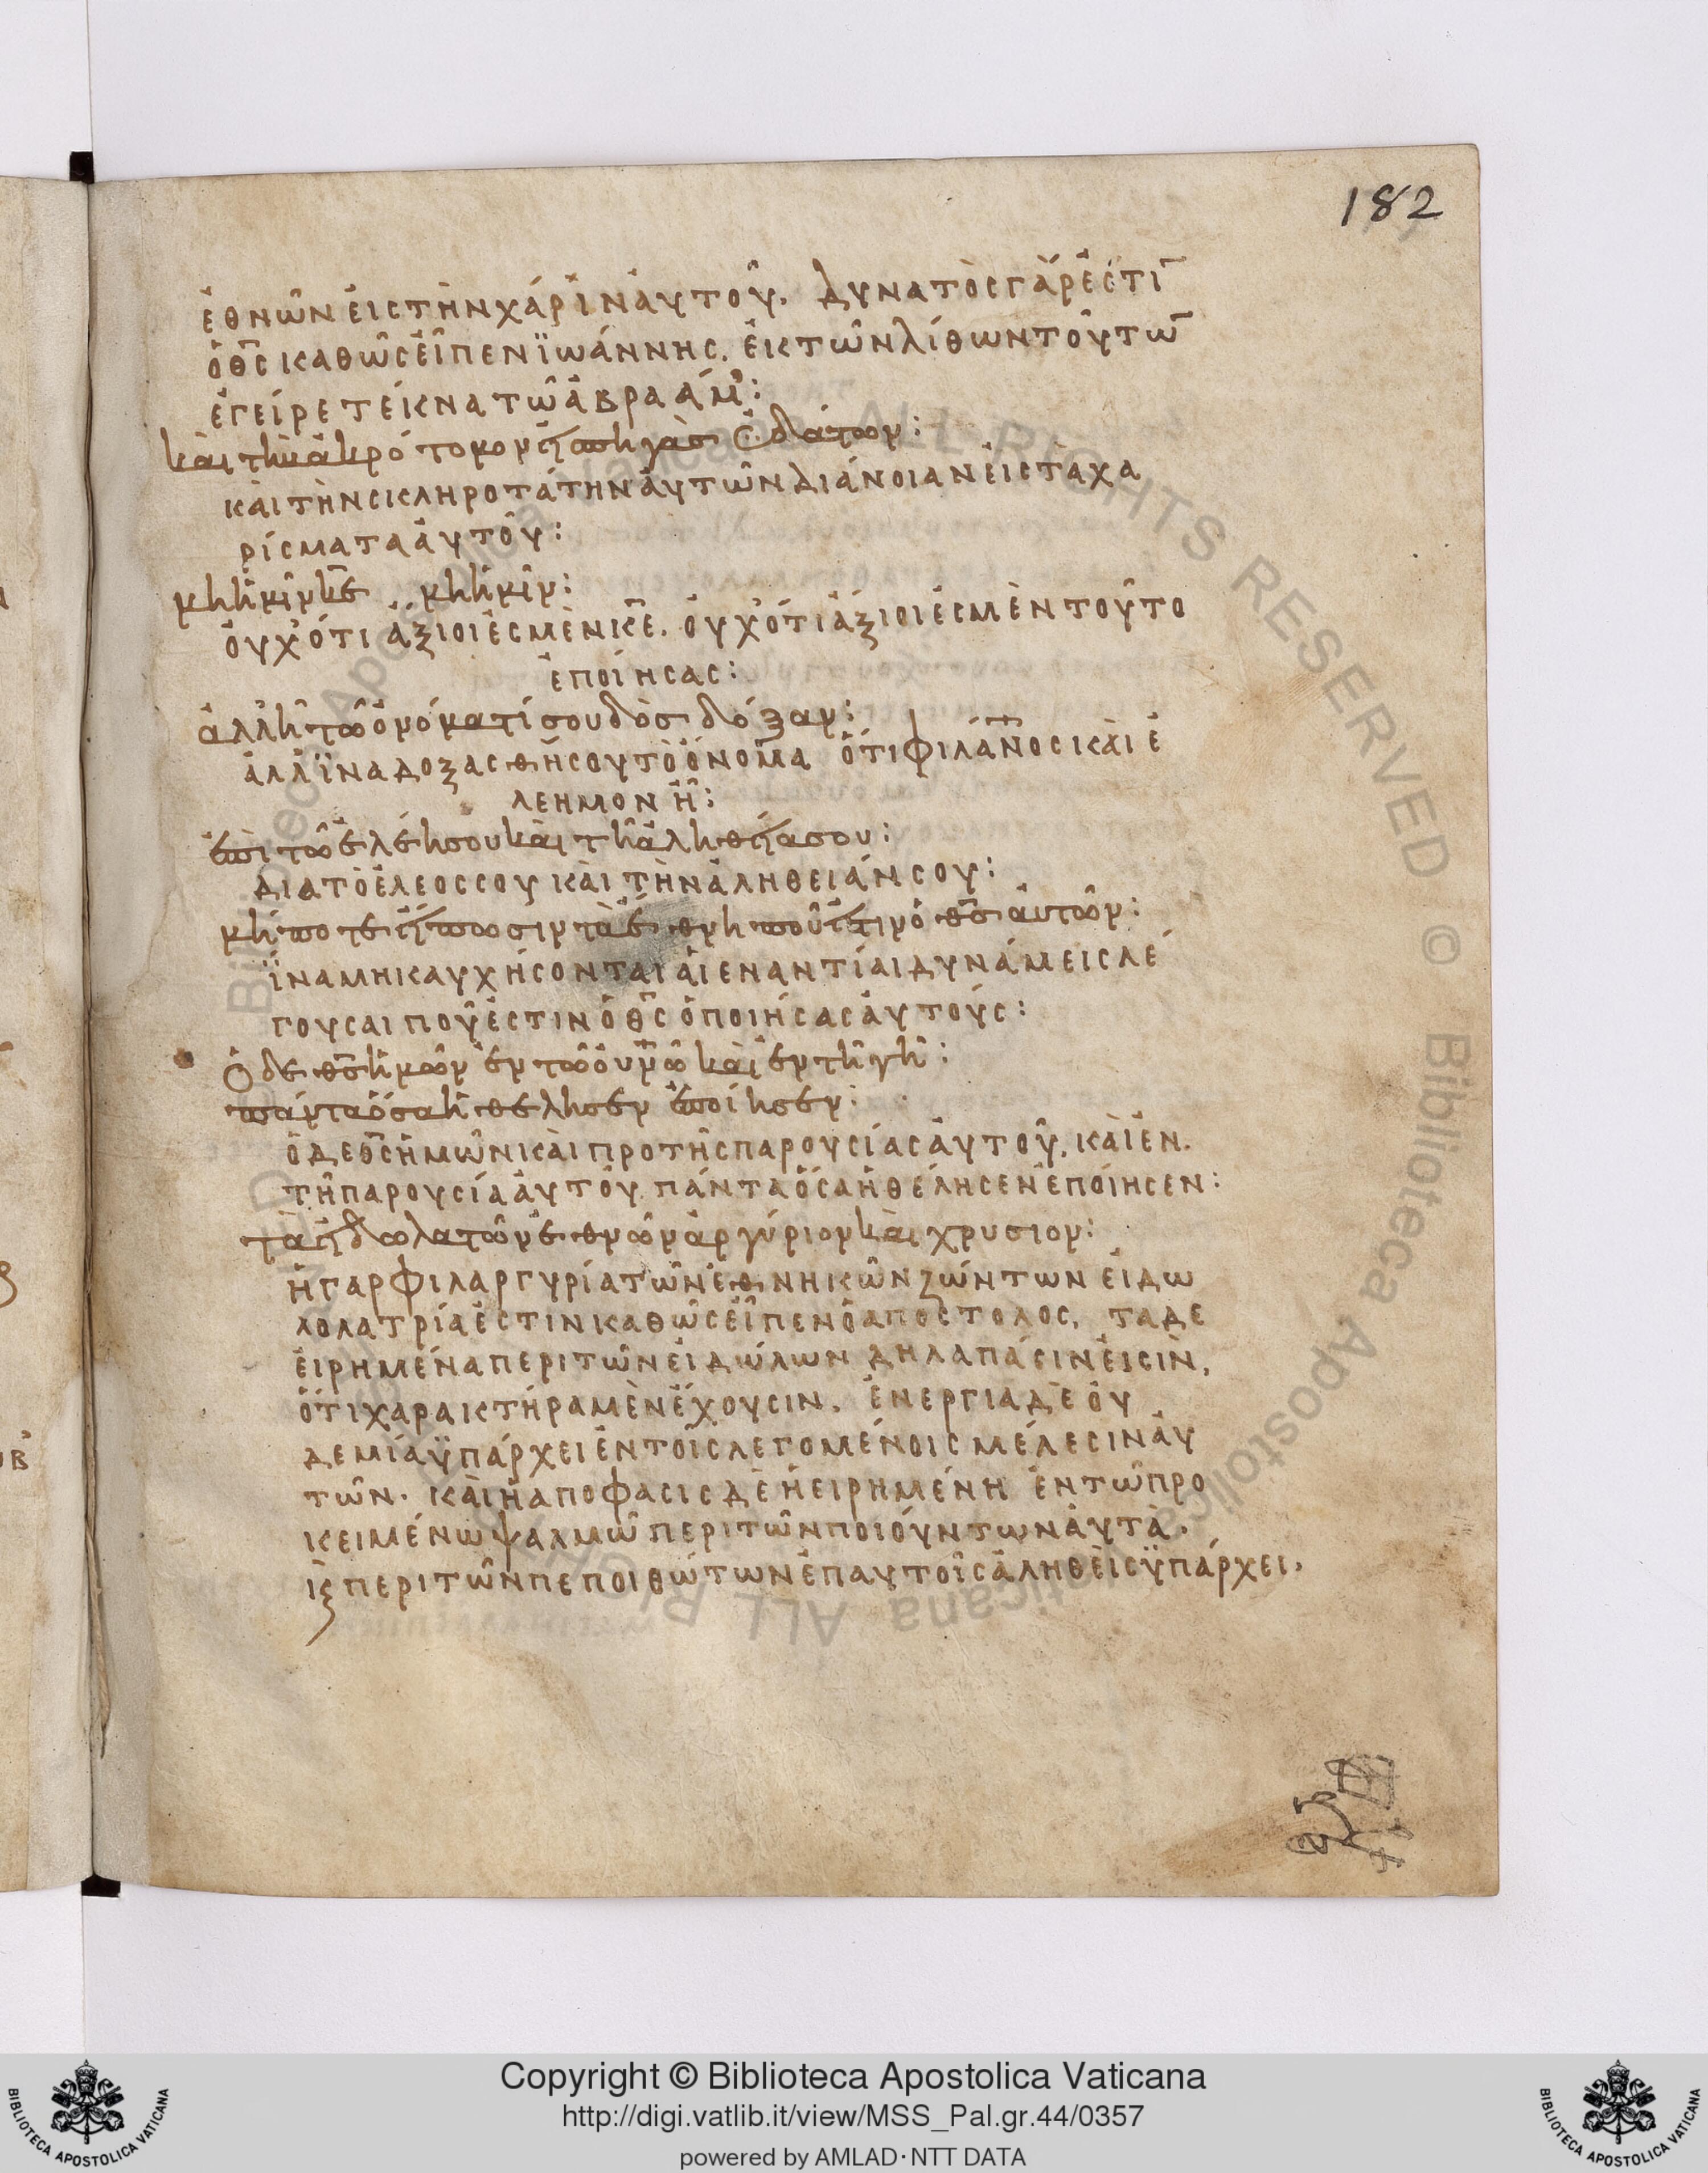 182
ἐθνῶν εἰς τὴν χάριν αὐτοῦ. δυνατὸς γάρ ἐστῑ
ὁ θ̅ς̅ καθὼς εἶπεν ϊωάννης. ἐκ τῶν λίθων τούτω̅
ἐγείρε τέκνα τῶ ἀβραάμ:
καὶ τὴν ἀκρότομον εἰς πηγὰς ὑδάτων:
καὶ τὴν σκληροτάτην αὐτῶν διάνοιαν εἰς τὰ χα
ρίσματα αὐτοῦ:
μὴ ἡμῖν κ̅ε̅ μὴ ἡμῖν:
οὐχ ὅτι ἄξιοι ἐσμὲν κ̅ε̅. οὐχ ὅτι ἄξιοι ἐσμὲν τοῦτο
ἐποίησας:
ἀλλ ἢ τῶ ὀνόματί σου δὸς δόξαν:
ἀλλ ϊνα δοξασθῇ σου τὸ ὄνομα ὅτι φιλά̅ν̅ος καὶ ἐ
λεήμον ἦ:
ἐπὶ τῶ ἐλέη σου καὶ τῆ ἀληθεία σου:
δια τὸ ἔλεος σου καὶ τὴν ἀλήθειάν σου:
μή ποτε εἴπωσιν τὰ ἔθνη ποῦ ἐστιν ὁ θ̅ς̅ αὐτῶν:
ϊνα μη καυχήσονται αἱ εναντίαι δυνάμεις λέ
γουσαι ποῦ ἐστιν ὁ θ̅ς̅ ὁ ποιήσας αὐτούς:
Ὁ δε θ̅ς̅ ἡμῶν ἐν τῶ οὐν̅ῶ καὶ ἐν τῆ γῆ:
πάντα ὅσα ἠθέλησεν ἐποίησεν:
ὁ δε θ̅ς̅ ἡμῶν καὶ προ τῆς παρουσίας αὐτοῦ, καὶ ἐν.
τῆ παρουσία αὐτοῦ πάντα ὅσα ἠθέλησεν ἐποίησεν:
τὰ εἴδωλα τῶν ἐθνῶν ἀργύριον καὶ χρυσιον:
ἡ γαρ φιλαργυρία τῶν ἐθνηκῶν ζώντων εἰδω
λολατρία ἐστιν καθὼς εἶπεν ὁ αποστολος, τα δε
εἰρημένα περι τῶν εἰδώλων δηλα πάσιν εἰσὶν,
ὅτι χαρακτήρα μὲν ἔχουσιν. ἐνεργια δε οὐ
δεμία ϋπάρχει ἐν τοῖς λεγομένοις μέλεσιν αὐ
τῶν. καὶ ἡ αποφασις δὲ ἡ ειρημένη ἐν τῶ προ
κειμένω ψαλμῶ περι τῶν ποιούντων αὐτὰ.
κ̣ περι τῶν πεποιθώτων ἐπ αυτοῖς ἀληθεὶς ϋπάρχει,
Copyright © Biblioteca Apostolica Vaticana
http://digi.vatlib.it/view/MSS_Pal.gr.44/0357
powered by AMLAD·NTT DATA
BIBLIOTECA APOSTOLICA VATICANA
BIBLIOTECA APOSTOLICA VATICANA